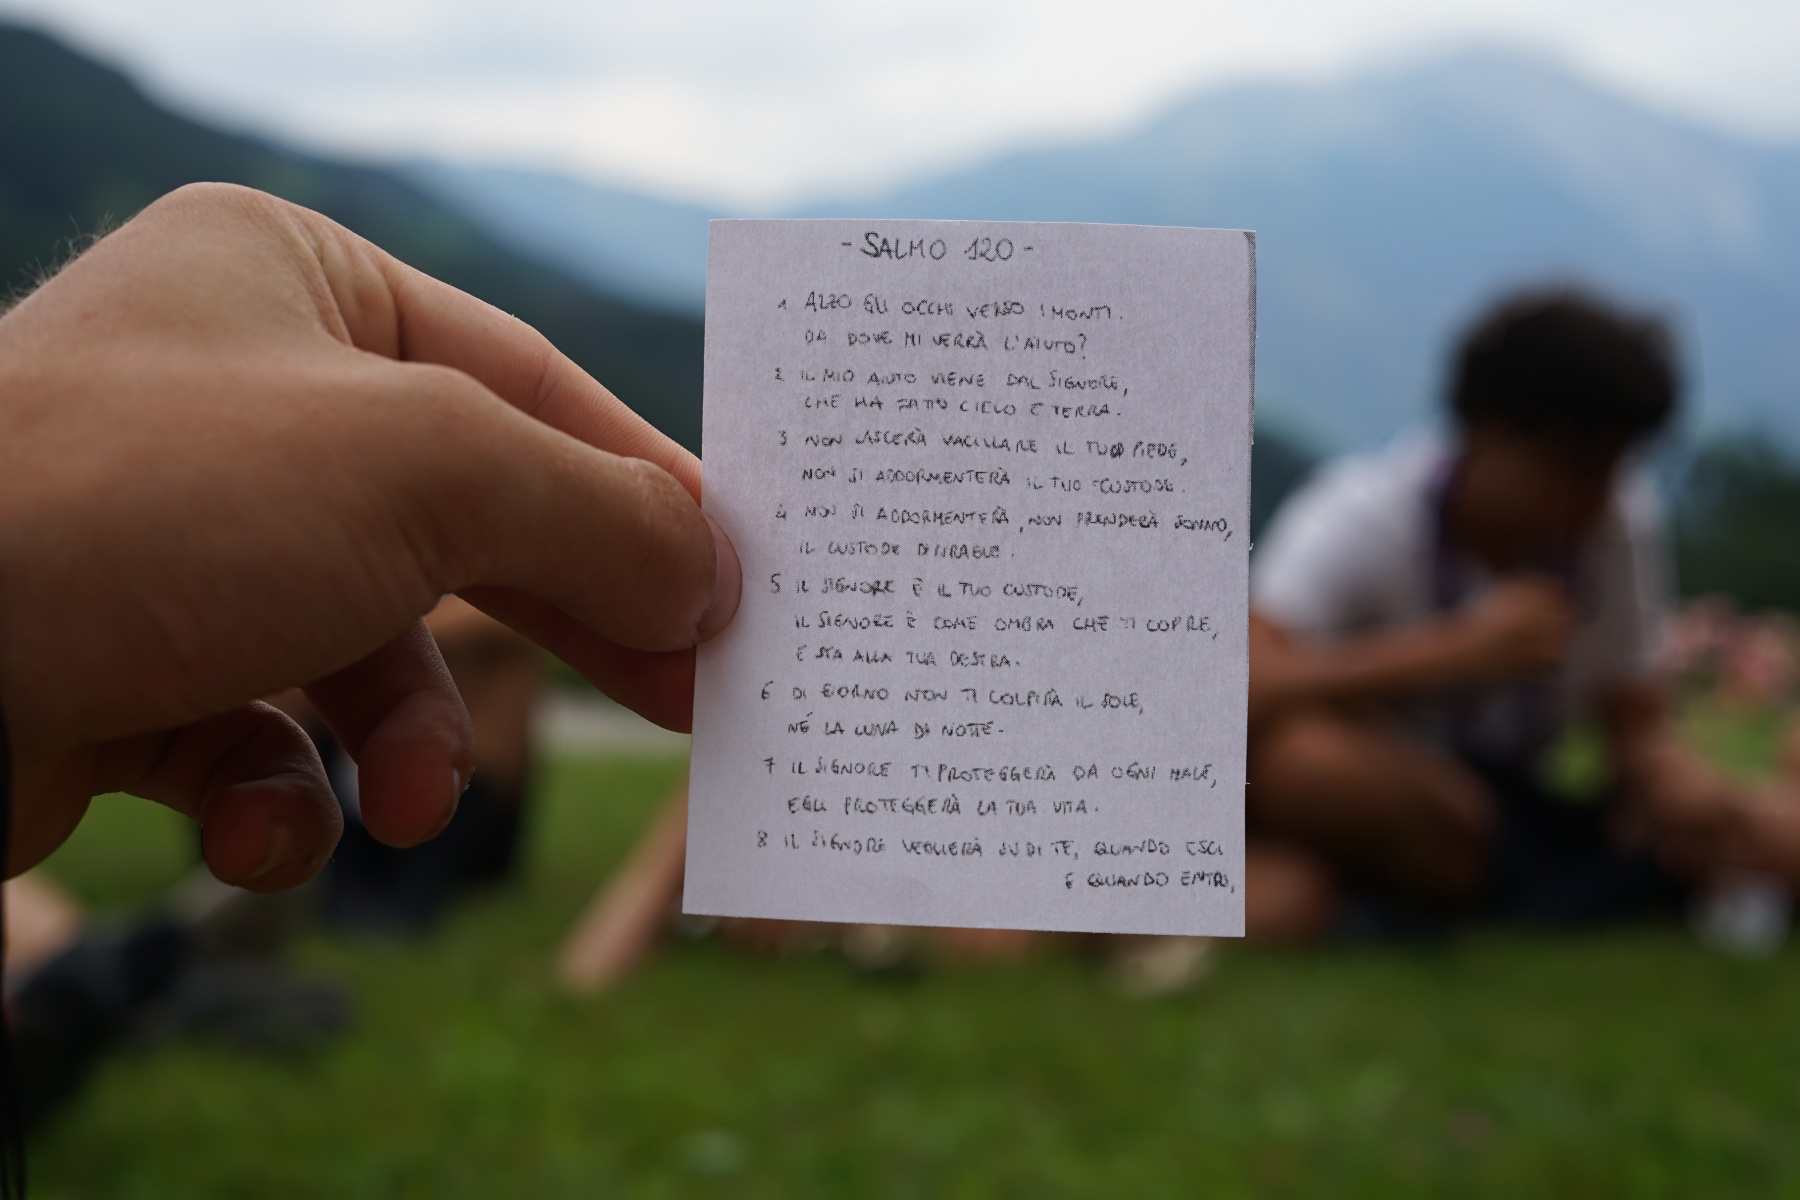 - SALMO 120 -
1 ALZO GLI OCCHI VERSO I MONTI.
DA DOVE MI VERRÀ L'AIUTO?
2 IL MIO AIUTO VIENE DAL SIGNORE,
CHE HA FATTO CIELO E TERRA.
3 NON LASCERÀ VACILLARE IL TUO PIEDE,
NON SI ADDORMENTERÀ IL TUO CUSTODE.
4 NON SI ADDORMENTERÀ, NON PRENDERÀ SONNO,
IL CUSTODE D'ISRAELE.
5 IL SIGNORE È IL TUO CUSTODE,
IL SIGNORE È COME OMBRA CHE TI COPRE,
E STA ALLA TUA DESTRA.
6 DI GIORNO NON TI COLPIRÀ IL SOLE,
NÉ LA LUNA DI NOTTE.
7 IL SIGNORE TI PROTEGGERÀ DA OGNI MALE,
EGLI PROTEGGERÀ LA TUA VITA.
8 IL SIGNORE VEGLIERÀ SU DI TE, QUANDO ESCI
E QUANDO ENTRI,